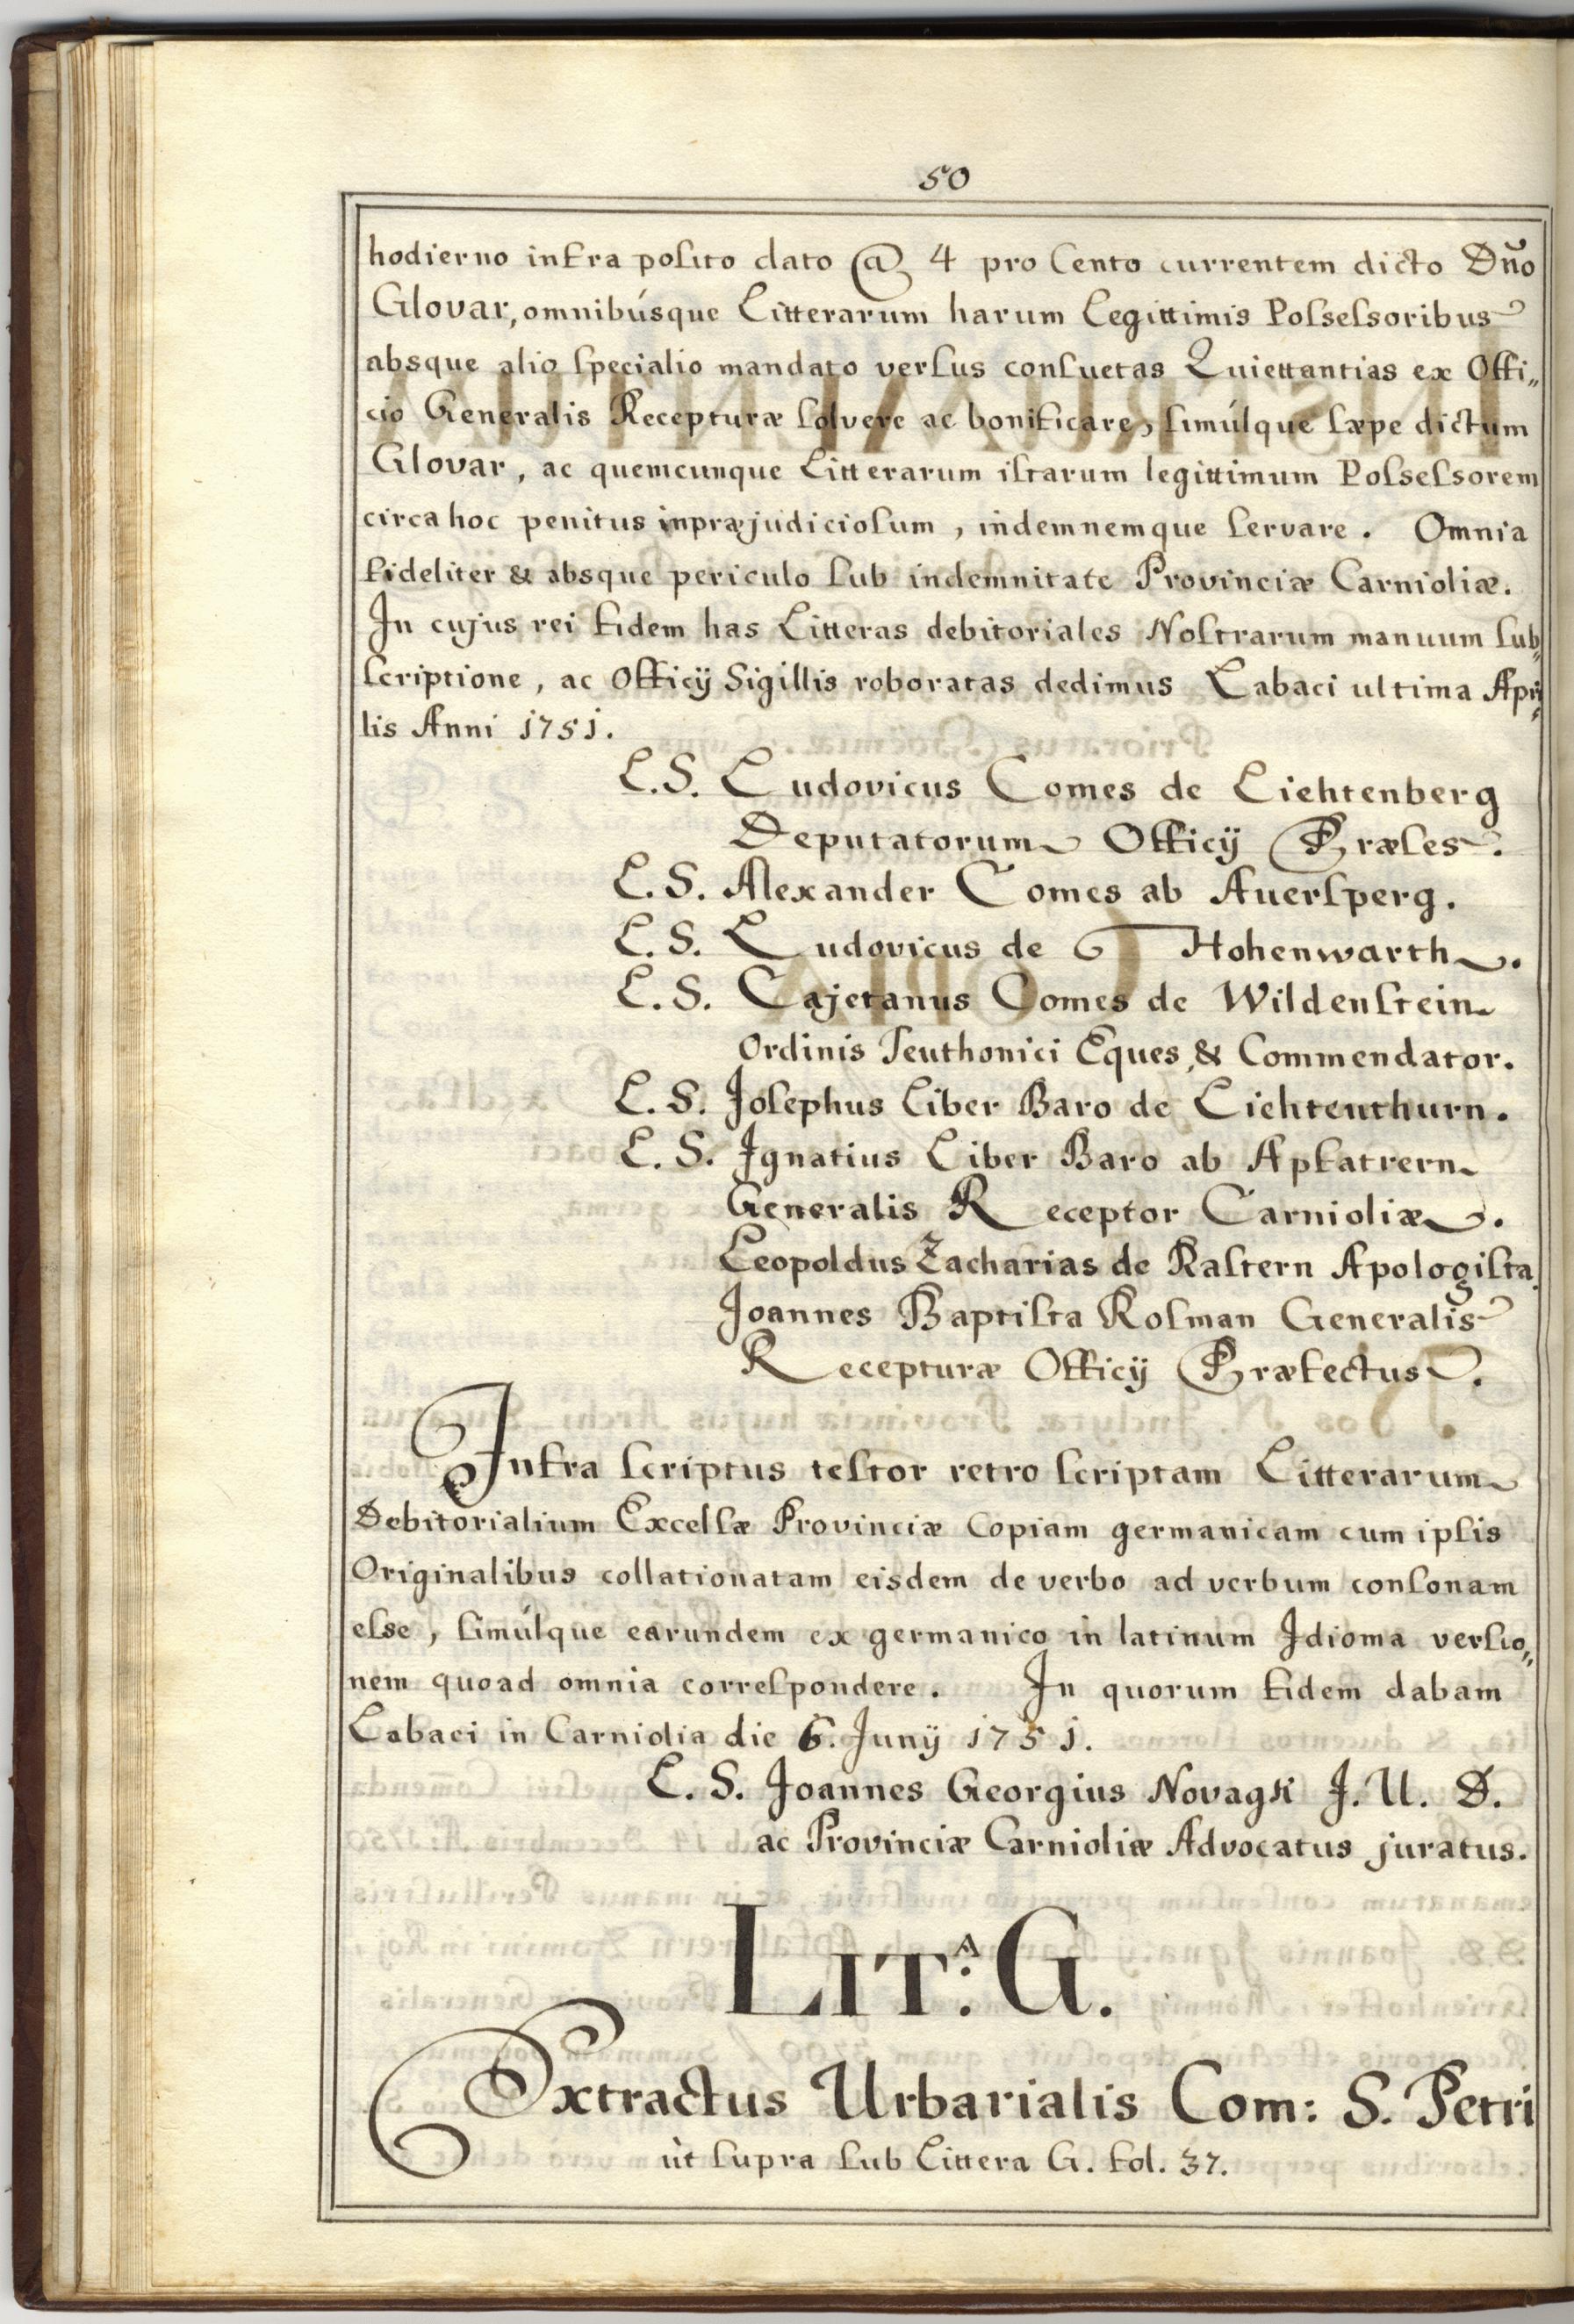 50
hodierno infra posito dato @ 4 pro Cento currentem dicto Dño
Glovar, omnibúsque Litterarum harum Legittimis Possessoribus
absque alio specialio mandato versus consuetas Quiettantias ex Offi„
cio Generalis Recepturæ solvere ac bonificare, simúlque sæpe dictum
Glovar, ac quemcunque Litterarum istarum legittimum Possessorem
circa hoc penitus inpræjudiciosum, indemnemque servare. Omnia
fideliter & absque periculo sub indemnitate Provinciæ Carnioliæ.
In cujus rei fidem has Litteras debitoriales Nostrarum manuum sub„
scriptione, ac Officij Sigillis roboratas dedimus Labaci ultima Apri„
lis Anni 1751.
L.S. Ludovicus Comes de Liehtenberg
Deputatorum Officij Præses.
L.S. Alexander Comes ab Auersperg.
L.S. Ludovicus de Hohenwarth.
L.S. Cajetanus Comes de Wildenstein
Ordinis Teuthonici Eques, & Commendator.
L.S. Josephus Liber Baro de Liehtenthurn.
L.S. Ignatius Liber Baro ab Apfatrern
Generalis Receptor Carnioliæ.
Leopoldus Zacharias de Rastern Apologista.
Joannes Baptista Rosman Generalis
Recepturæ Officij Præfectus.
Infra scriptus testor retro scriptam Litterarum
Debitorialium Excelsæ Provinciæ Copiam germanicam cum ipsis
Originalibus collationatam eisdem de verbo ad verbum consonam
esse, simúlque earundem ex germanico in latinum Idioma versio„
nem quoad omnia correspondere. In quorum fidem dabam
Labaci in Carniolia die 6. Junij 1751.
L.S. Joannes Georgius Novagk J. U. D.
ac Provinciæ Carnioliæ Advocatus juratus.
LIT:A G.
Extractus Urbarialis Com: S. Petri
ùt supra sub Littera G. fol. 37.